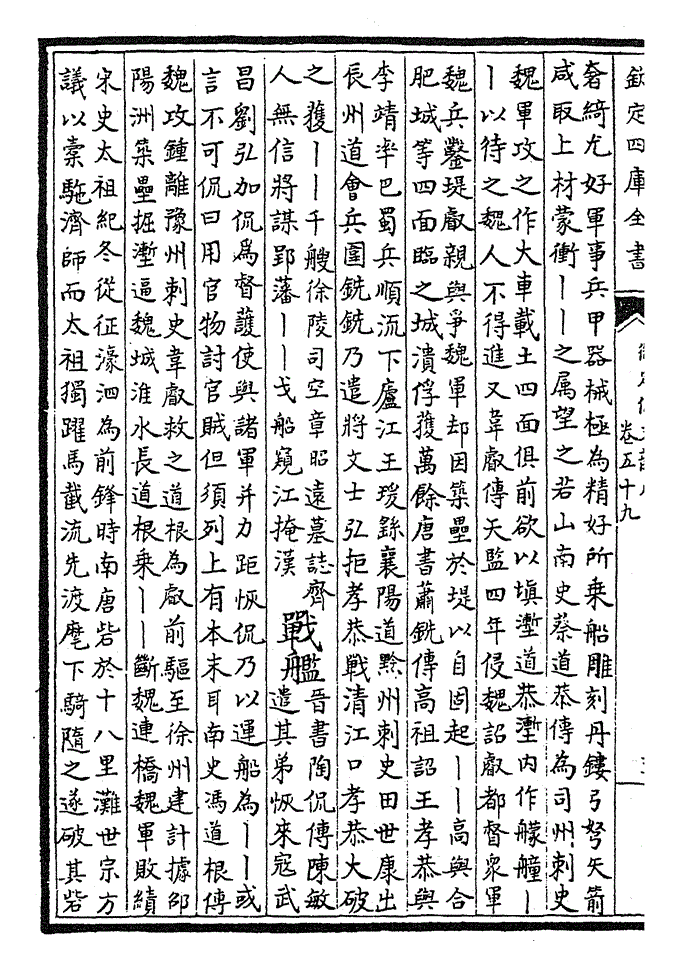 欽定四庫全書
卷五十九
奢綺尤好軍事兵甲器械極為精好所乗船雕刻丹鏤弓弩矢箭
咸取上材蒙衝丨丨之属望之若山南史蔡道恭傳為司州刺史
魏軍攻之作大車載土四面俱前欲以填壍道恭壍内作艨艟丨
丨以待之魏人不得進又韋叡傳天監四年侵魏詔叡都督衆軍
魏兵鑿堤叡親與爭魏軍却因築壘於堤以自固起丨丨高與合
肥城等四面臨之城潰俘獲萬餘唐書蕭銑傳高祖詔王孝恭與
李靖率巴蜀兵順流下廬江王瑗繇襄陽道黔州刺史田世康出
辰州道會兵圍銑銑乃遣將文士弘拒孝恭戰清江口孝恭大破
之獲丨丨千艘徐陵司空章昭遠墓誌齊
人無信將謀郢藩丨丨戈船窺江掩漢
戰艦
晉書陶侃傳陳敏
遣其弟恢來寇武
昌劉弘加侃為督䕶使與諸軍并力距恢侃乃以運船為丨丨或
言不可侃曰用官物討官賊但須列上有本末耳南史馮道根傳
魏攻鍾離豫州刺史韋叡救之道根為叡前驅至徐州建計據邵
陽洲築壘掘壍逼魏城淮水長道根乗丨丨斷魏連橋魏軍敗績
宋史太祖紀冬從征濠泗為前鋒時南唐砦於十八里灘世宗方
議以橐駞濟師而太祖獨躍馬截流先渡麾下騎隨之遂破其砦